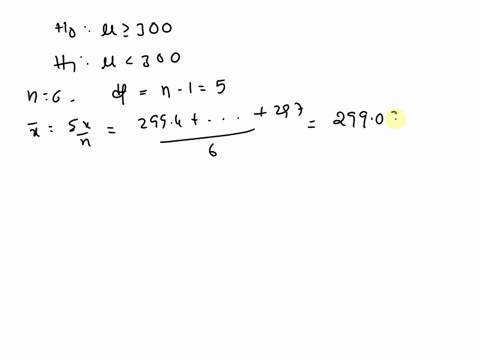 H0: μ ≥ 300
H1: μ < 300
n=6. df = n-1 = 5
x̄ = Σx/n = 299.4 + ... + 297 / 6 = 299.03